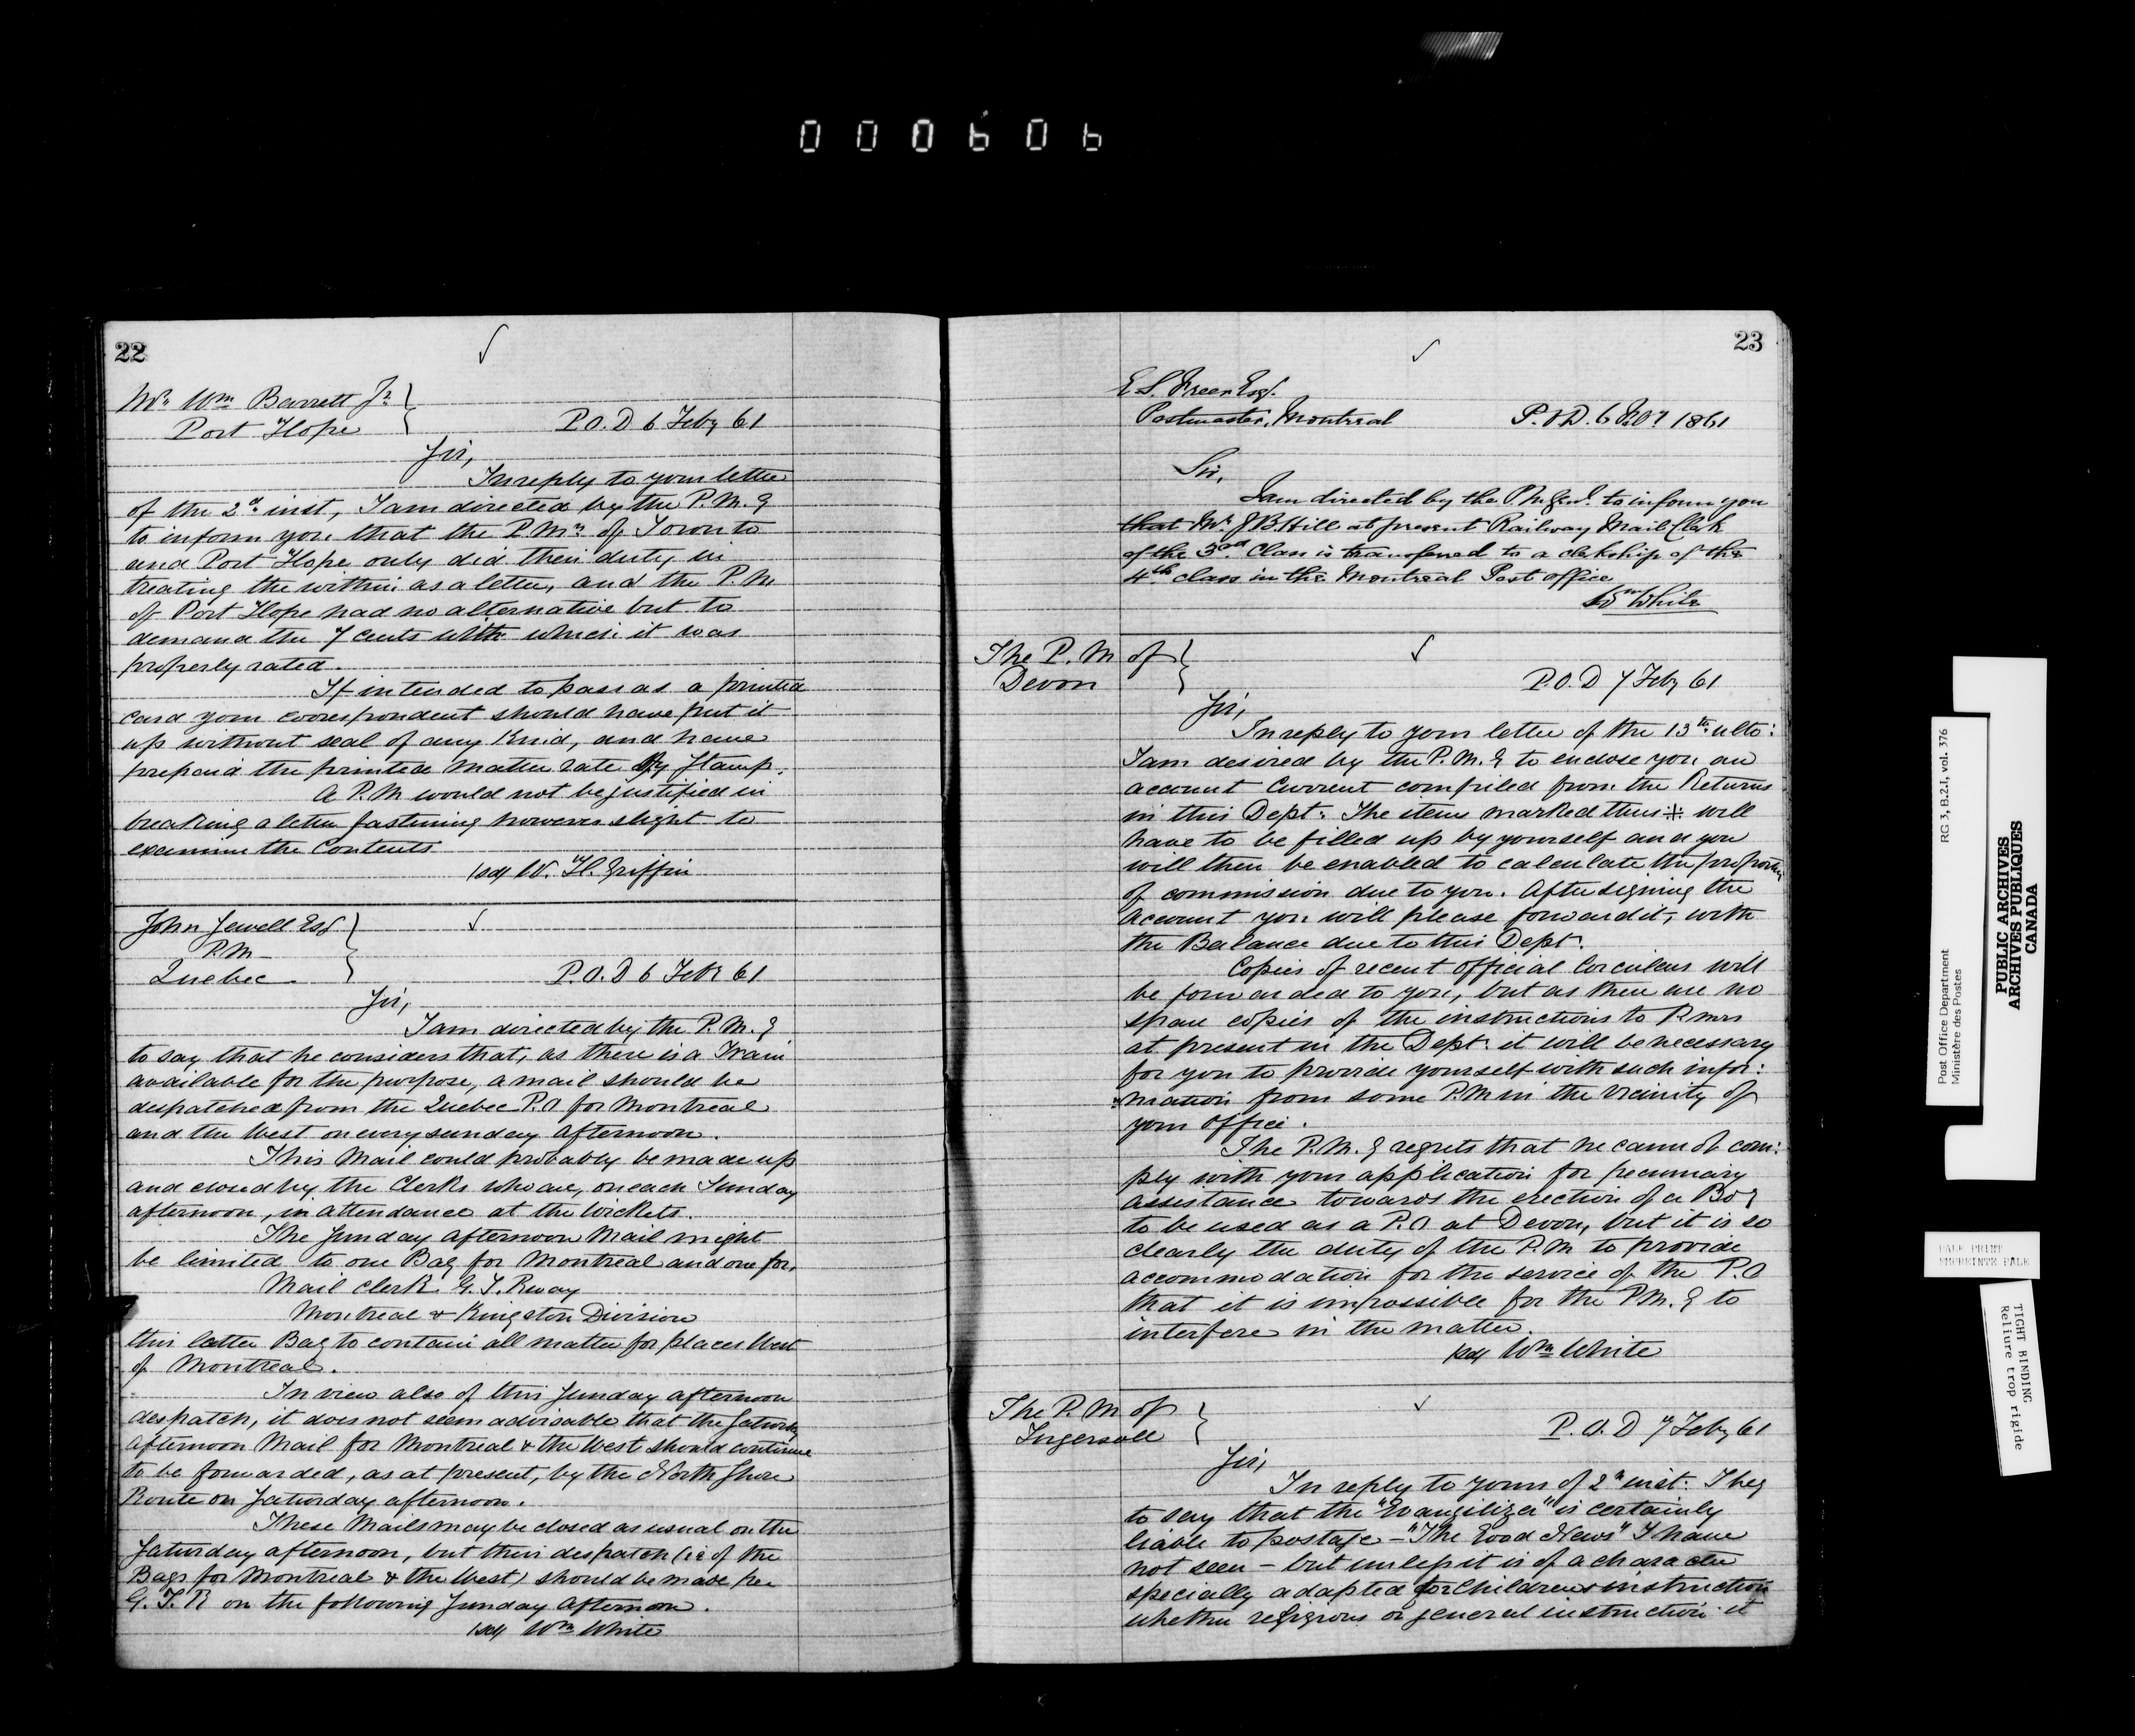 000606
22
Mr. Wm Barrett Jr.
Port Hope
P.O.D 6 Feby 61
Sir,
In reply to your letter
of the 2d. inst, I am directed by the P.M.G
to inform you that the P.Mrs of Toronto
and Port Hope only did their duty in
treating the within as a letter, and the P.M
of Port Hope had no alternative but to
demand the 7 cents with which it was
properly rated.
If intended to pass as a printed
card your correspondent should have put it
up without seal of any kind, and have
prepaid the printed matter rate By Stamp.
A P.M would not be justified in
breaking a letter fastening however slight to
examine the Contents
(sd) W. H. Griffin
John Sewell Esq
P.M
Quebec
P.O.D 6 Feby 61
Sir,
I am directed by the P.M.G
to say, that he considers that, as there is a Train
available for the purpose, a mail should be
despatched from the Quebec P.O for Montreal
and the West on every sunday afternoon.
This Mail could probably be made up
and closed by the Clerks who are, on each Sunday
afternoon, in attendance at the Wickets.
The Sunday afternoon Mail might
be limited to one Bag for Montreal and one for,
Mail Clerk G. T. Rway
Montreal & Kingston Division
this latter Bag to contain all matter for places West
of Montreal.
In view also of this Sunday afternoon
despatch, it does not seem advisable that the Saturday
afternoon Mail for Montreal & the West should continue
to be forwarded, as at present, by the North Shore
Route on Saturday afternoon.
These Mails may be closed as usual on the
Saturday afternoon, but their despatch (ie of the
Bags for Montreal & the West) should be made per
G. T. R on the following Sunday afternoon.
(sd) Wm White
23
E. S. Freer Esq.
Postmaster, Montreal
P.O.D. 6 1861
Sir,
I am directed by the P.M.Genl. to inform you
that Mr. J B Hill at present Railway Mail Clerk
of the 3rd Class is transferred to a clerkship of the
4th class in the Montreal Post office
Wm White
The P.M of
Devon
P.O.D 7 Feby 61
Sir,
In reply to your letter of the 13th. ulto:
I am desired by the P.M.G to enclose you an
account Current compiled from the Returns
in this Dept: The items marked thus ※ will
have to be filled up by yourself and you
will then be enabled to calculate the proportion
of commission due to you. After signing the
account you will please forward it, with
the Balance due to this Dept.
Copies of recent official Circulars will
be forwarded to you, but as there are no
spare copies of the instructions to P.mrs
at present in the Dept: it will be necessary
for you to provide yourself with such infor:
:mation from some P.M in the vicinity of
your office.
The P.M.G regrets that he cannot com:
ply with your application for pecuniary
assistance towards the erection of a Bdg
to be used as a P.O at Devon, but it is so
clearly the duty of the P.M to provide
accommodation for the service of the P.O
that it is impossible for the P.M.G to
interfere in the matter.
(sd) Wm White
The P.M of
Ingersoll
P.O.D 7 Feby 61
Sir,
In reply to yours of 2d inst: I beg
to say that the "Evangilizer" is certainly
liable to postage - "The Good News" I have
not seen - but unless it is of a character
specially adapted for Childrens instruction
whether religious or general instruction it
Post Office Department
Ministère des Postes
RG 3, B.2.1, vol. 376
PUBLIC ARCHIVES
ARCHIVES PUBLIQUES
CANADA
PALE PRINT
EMPREINTE PALE
TIGHT BINDING
Reliure trop rigide